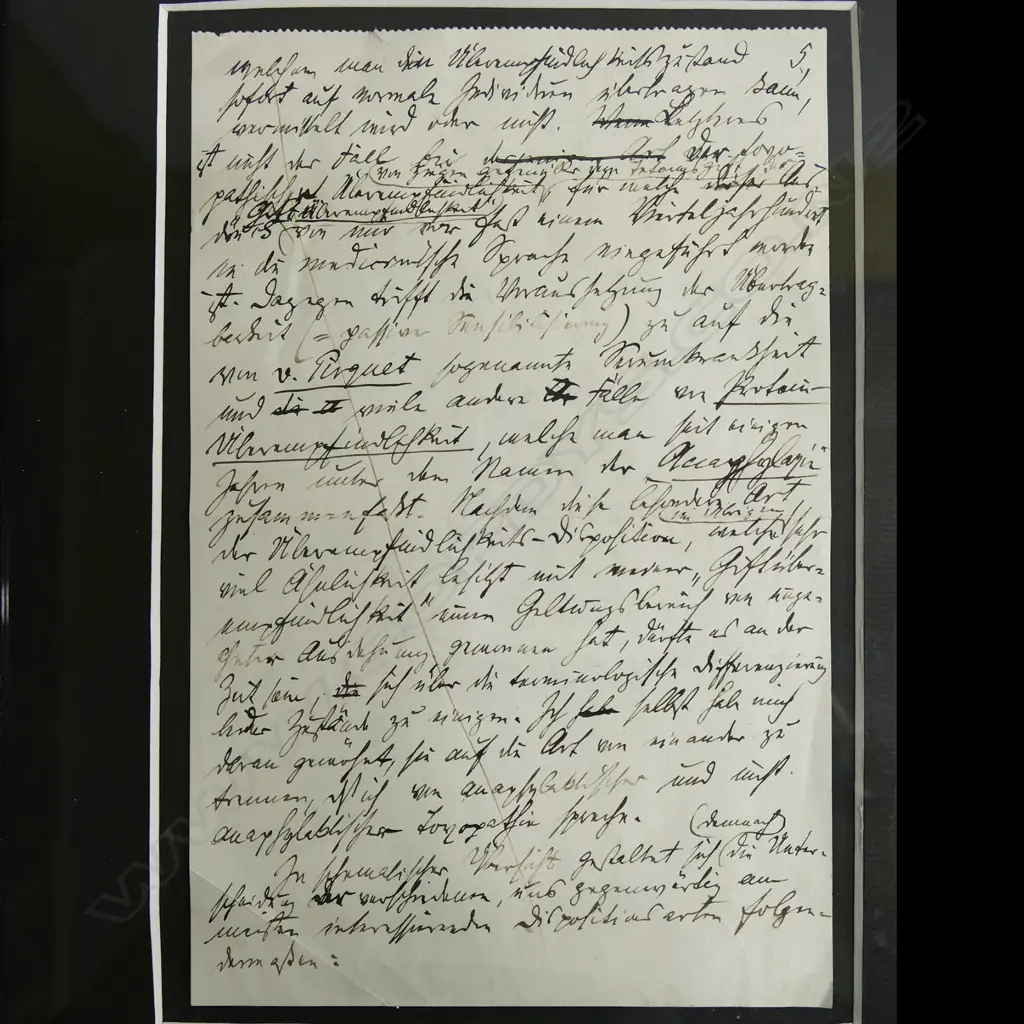 5,
welchem man den Überempfindlichkeitszustand
sofort auf normale Individuen übertragen kann,
vermittelt wird oder nicht. Wenn Letzteres
ist nicht der Fall bei der toxo-
pathischen Überempfindlichkeit, für welche der Aus-
druck „Giftüberempfindlichkeit“
von mir vor fast einem Vierteljahrhundert
in die medicinische Sprache eingeführt worden
ist. Dagegen trifft die Voraussetzung der Übertrag-
barkeit (= passive Sensibilisierung) zu auf die
von v. Pirquet sogenannte Serumkrankheit
und die viele andere Fälle von Protein-
Überempfindlichkeit, welche man seit einigen
Jahren unter dem Namen der „Anaphylaxie“
zusammenfaßt. Nachdem diese besondere Art
im Übrigen
der Überempfindlichkeits-Disposition, welche sehr
viel Ähnlichkeit besitzt mit meiner „Giftüber-
empfindlichkeit“ einen Geltungsbereich von unge-
ahnter Ausdehnung genommen hat, dürfte es an der
Zeit sein, sich über die terminologische Differenzierung
beider Zustände zu einigen. Ich habe selbst habe mich
daran gewöhnt, sie auf die Art von einander zu
trennen, dß ich von anaphylaktischer und nicht
anaphylaktischer Toxopathie spreche.
(demnach)
In schematischer Übersicht gestaltet sich die Unter-
scheidung der verschiedenen, uns gegenwärtig am
meisten interessierenden Dispositionsarten folgen-
dermaßen: